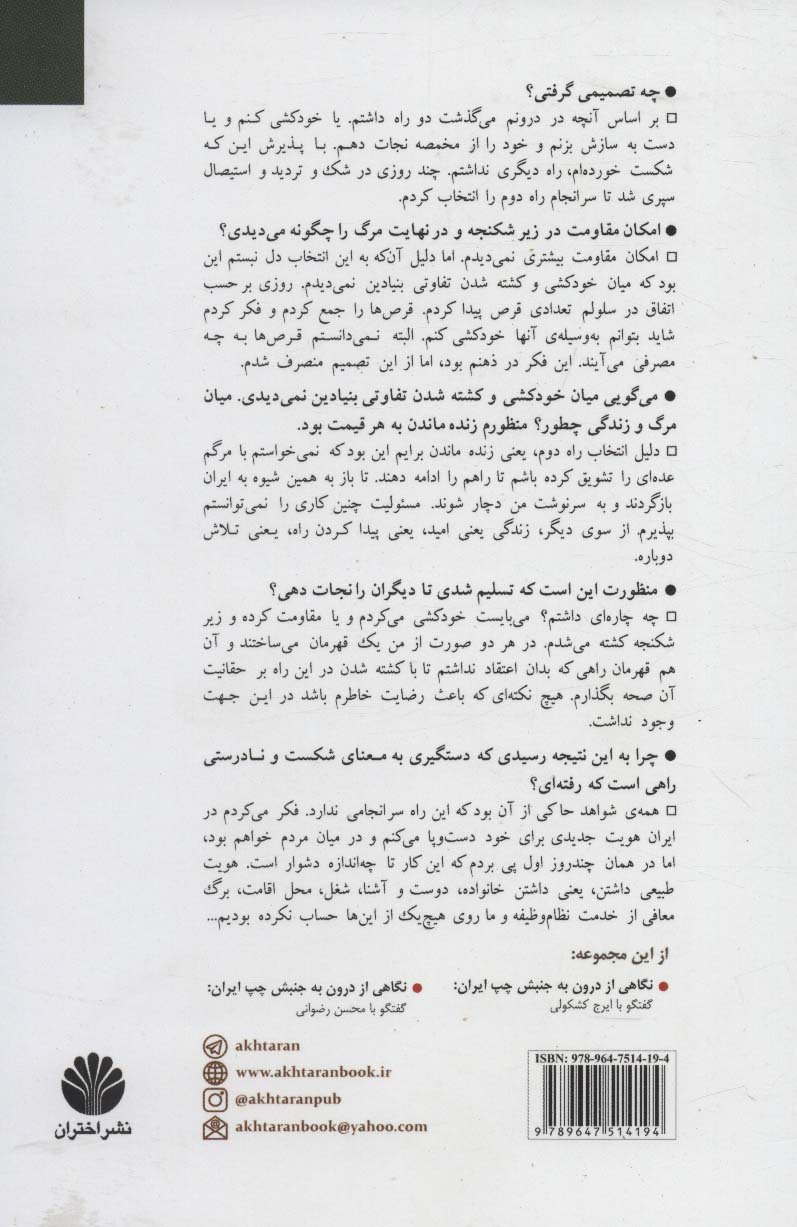 ● چه تصمیمی گرفتی؟
□ بر اساس آنچه در درونم می‌گذشت دو راه داشتم. یا خودکشی کنم و یا
دست به سازش بزنم و خود را از مخمصه نجات دهم. با پذیرش این که
شکست خورده‌ام، راه دیگری نداشتم. چند روزی در شک و تردید و استیصال
سپری شد تا سرانجام راه دوم را انتخاب کردم.
● امکان مقاومت در زیر شکنجه و در نهایت مرگ را چگونه می‌دیدی؟
□ امکان مقاومت بیشتری نمی‌دیدم. اما دلیل آن‌که به این انتخاب دل نبستم این
بود که میان خودکشی و کشته شدن تفاوتی بنیادین نمی‌دیدم. روزی بر حسب
اتفاق در سلولم تعدادی قرص پیدا کردم. قرص‌ها را جمع کردم و فکر کردم
شاید بتوانم به‌وسیله‌ی آنها خودکشی کنم. البته نمی‌دانستم قرص‌ها به چه
مصرفی می‌آیند. این فکر در ذهنم بود، اما از این تصمیم منصرف شدم.
● می‌گویی میان خودکشی و کشته شدن تفاوتی بنیادین نمی‌دیدی. میان
مرگ و زندگی چطور؟ منظورم زنده ماندن به هر قیمت بود.
□ دلیل انتخاب راه دوم، یعنی زنده ماندن برایم این بود که نمی‌خواستم با مرگم
عده‌ای را تشویق کرده باشم تا راهم را ادامه دهند. تا باز به همین شیوه به ایران
بازگردند و به سرنوشت من دچار شوند. مسئولیت چنین کاری را نمی‌توانستم
بپذیرم. از سوی دیگر، زندگی یعنی امید، یعنی پیدا کردن راه، یعنی تلاش
دوباره.
● منظورت این است که تسلیم شدی تا دیگران را نجات دهی؟
□ چه چاره‌ای داشتم؟ می‌بایست خودکشی می‌کردم و یا مقاومت کرده و زیر
شکنجه کشته می‌شدم. در هر دو صورت از من یک قهرمان می‌ساختند و آن
هم قهرمان راهی که بدان اعتقاد نداشتم تا با کشته شدن در این راه بر حقانیت
آن صحه بگذارم. هیچ نکته‌ای که باعث رضایت خاطرم باشد در این جهت
وجود نداشت.
● چرا به این نتیجه رسیدی که دستگیری به معنای شکست و نادرستی
راهی است که رفته‌ای؟
□ همه‌ی شواهد حاکی از آن بود که این راه سرانجامی ندارد. فکر می‌کردم در
ایران هویت جدیدی برای خود دست‌وپا می‌کنم و در میان مردم خواهم بود،
اما در همان چندروز اول پی بردم که این کار تا چه‌اندازه دشوار است. هویت
طبیعی داشتن، یعنی داشتن خانواده، دوست و آشنا، شغل، محل اقامت، برگ
معافی از خدمت نظام‌وظیفه و ما روی هیچ‌یک از این‌ها حساب نکرده بودیم...
از این مجموعه:
● نگاهی از درون به جنبش چپ ایران:
گفتگو با ایرج کشکولی
● نگاهی از درون به جنبش چپ ایران:
گفتگو با محسن رضوانی
akhtaran
www.akhtaranbook.ir
@akhtaranpub
akhtaranbook@yahoo.com
ISBN: 978-964-7514-19-4
9 789647 514194
نشر اختران